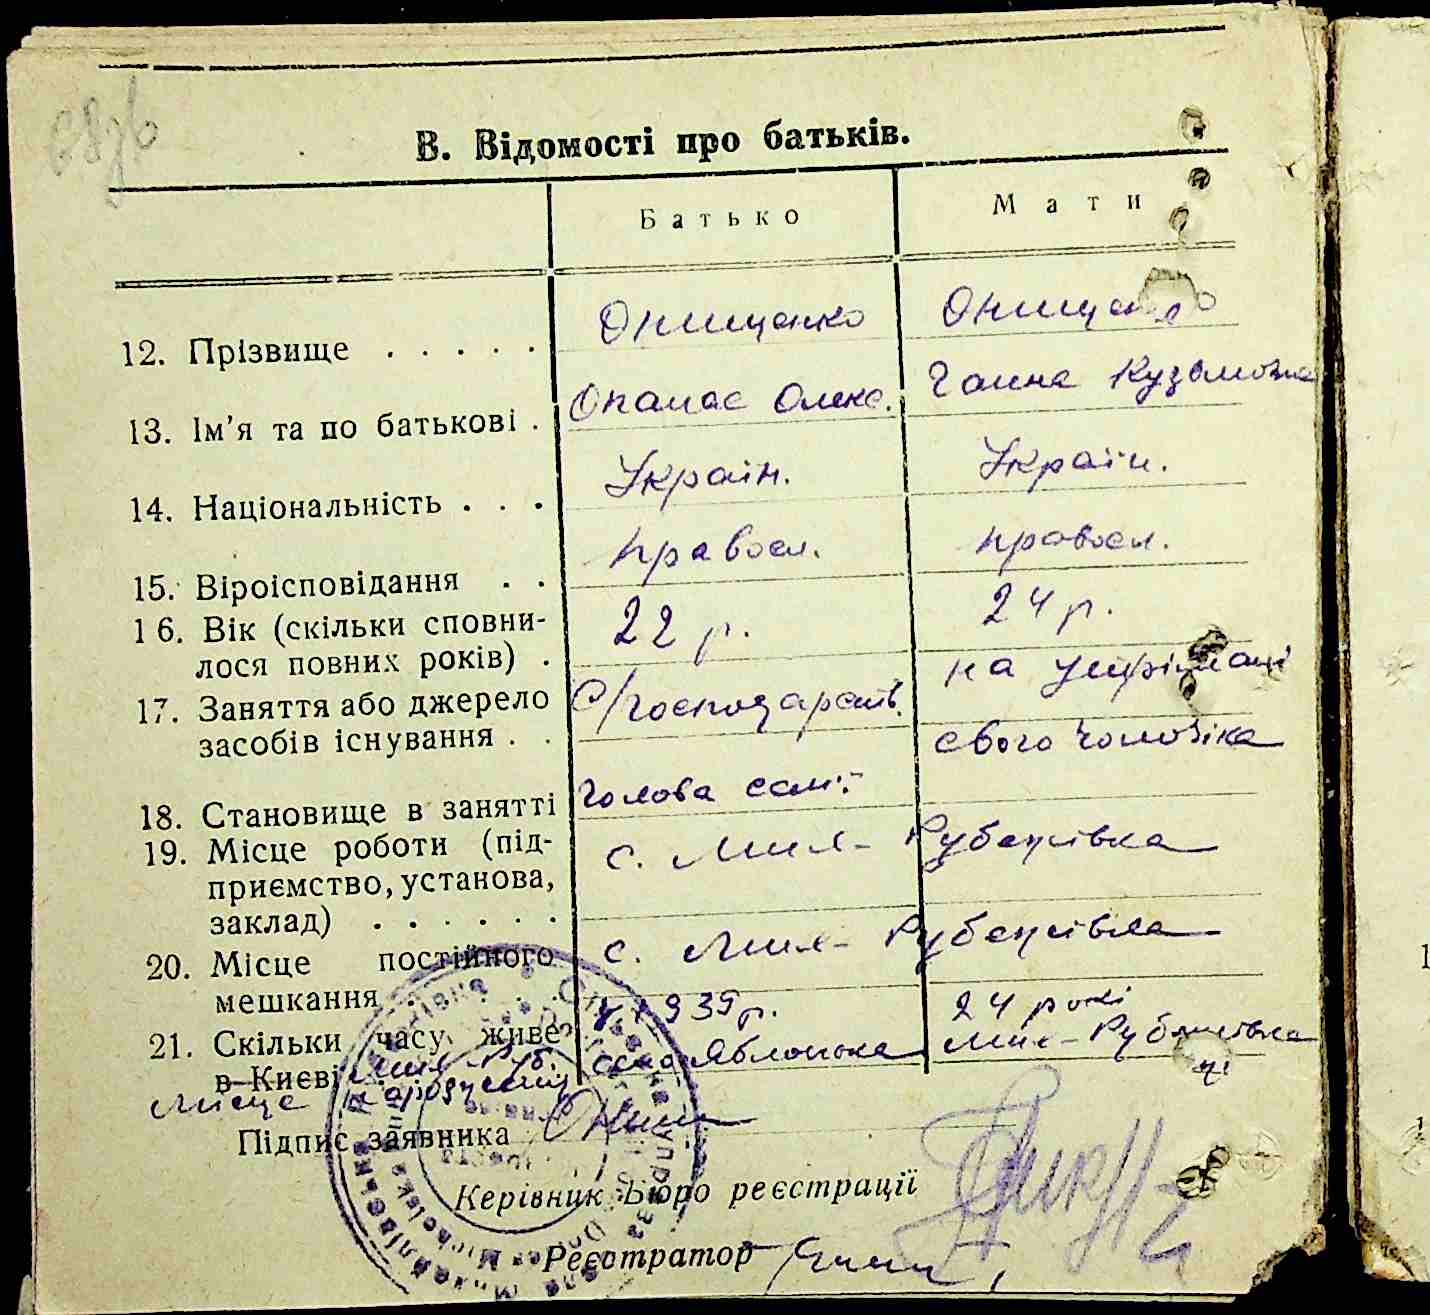 В. Відомості про батьків.
Батько Мати
12. Прізвище . . . . . Онищенко Онищенко
13. Ім'я та по батькові . Опанас Олекс. Ганна Кузьмовна
14. Національність . . . Україн. Україн.
15. Віроісповідання . . правосл. правосл.
16. Вік (скільки сповни- 22 р. 24 р.
лося повних років) .
17. Заняття або джерело С/господарств. на утрiманi
засобів існування . . свого чоловіка
18. Становище в занятті голова сем'ї
19. Місце роботи (під- с. Мик- Рубежівка
приємство, установа,
заклад) . . . . . .
20. Місце постійного с. Мик- Рубежівка
мешкання . . . .
21. Скільки часу живе з 1939 р. 24 рокі
в Києві Мик-Руб. село Яблонька Мик-Рубежівка
Місце народження
Підпис заявника Онищ
Керівник Бюро реєстрації
Реєстратор